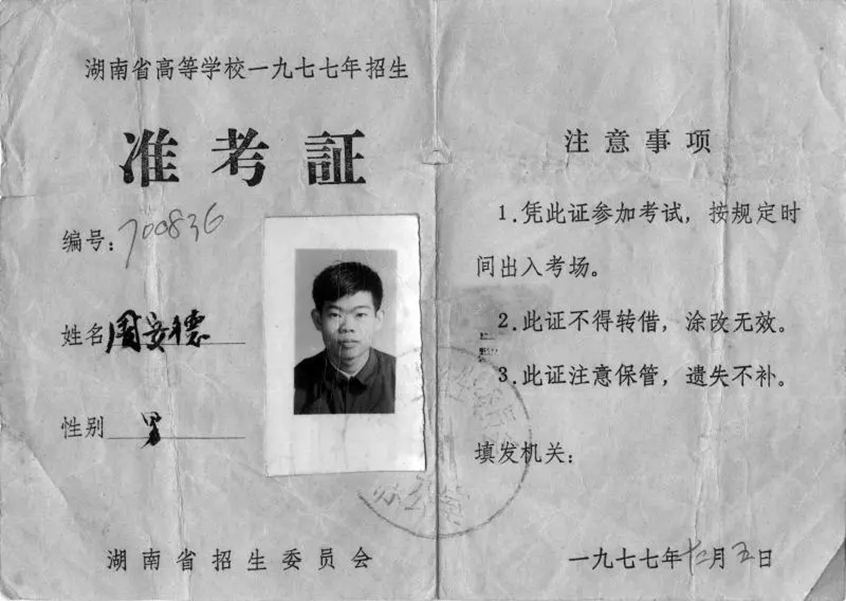 湖南省高等学校一九七七年招生
准考証
编号：700836
姓名 周安德
性别 男
湖南省招生委员会
注意事项
1.凭此证参加考试，按规定时
间出入考场。
2.此证不得转借，涂改无效。
3.此证注意保管，遗失不补。
填发机关：
办公室
一九七七年十二月五日